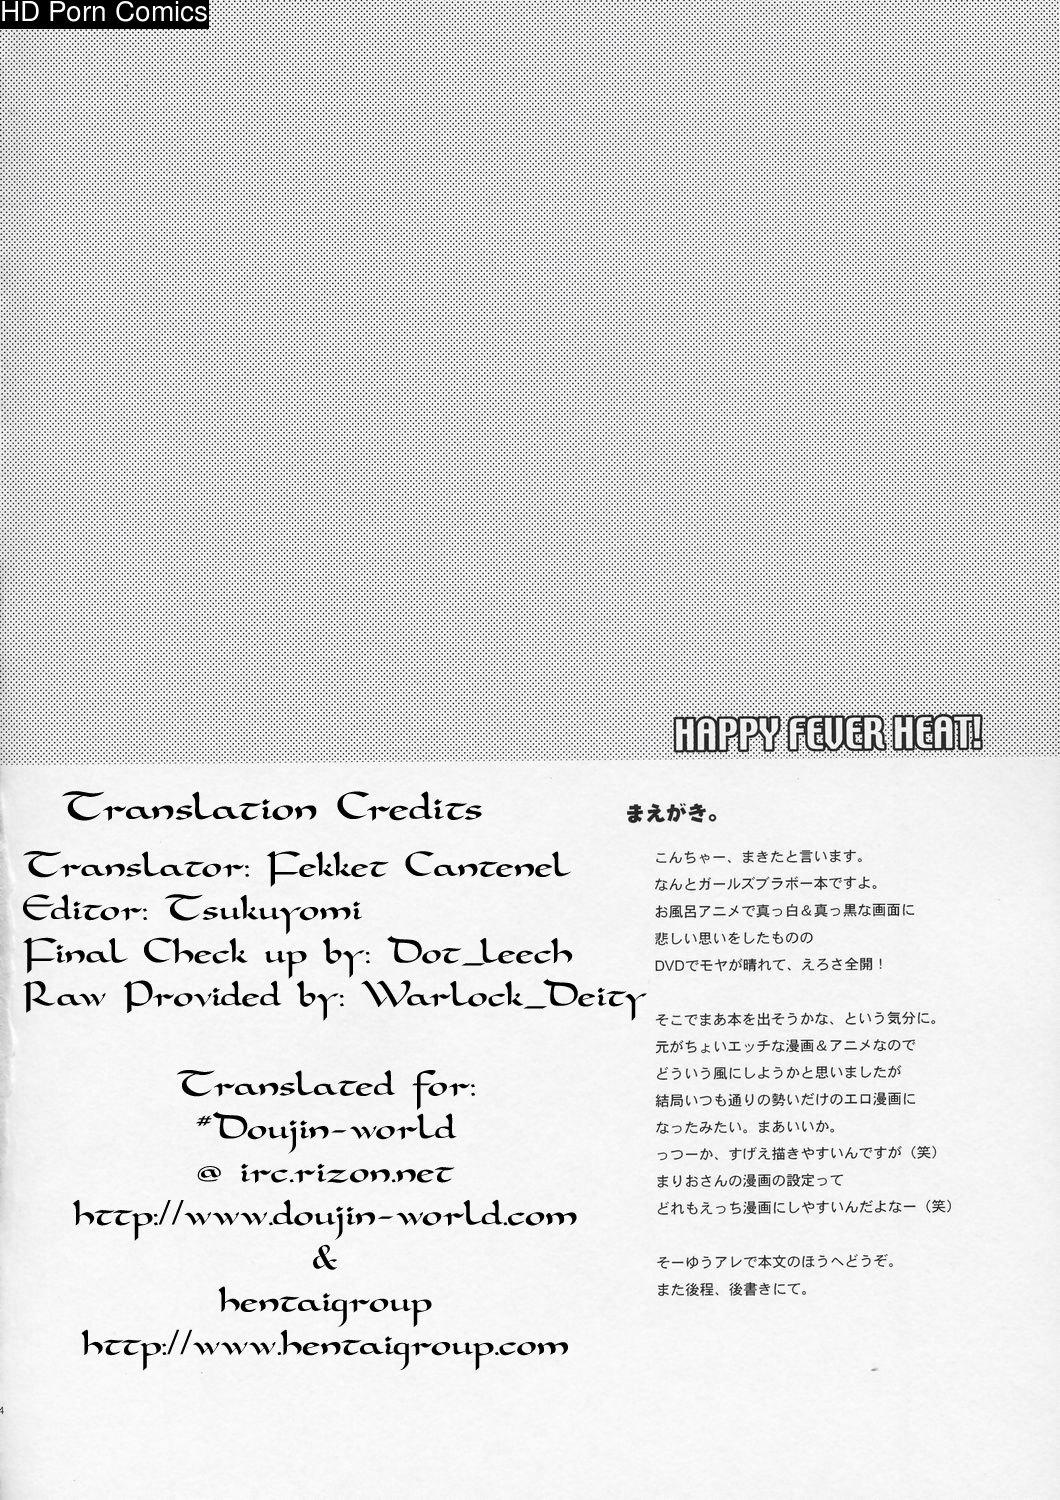 HD Porn Comics
HAPPY FEVER HEAT!
Translation Credits
Translator: Fekket Cantenel
Editor: Tsukuyomi
Final Check up by: Dot_leech
Raw Provided by: Warlock_Deity
Translated for:
#Doujin-world
@ irc.rizon.net
http://www.doujin-world.com
&
hentaigroup
http://www.hentaigroup.com
まえがき。
こんちゃー、まきたと言います。
なんとガールズブラボー本ですよ。
お風呂アニメで真っ白＆真っ黒な画面に
悲しい思いをしたものの
DVDでモヤが晴れて、えろさ全開！
そこでまあ本を出そうかな、という気分に。
元がちょいエッチな漫画＆アニメなので
どういう風にしようかと思いましたが
結局いつも通りの勢いだけのエロ漫画に
なったみたい。まあいいか。
っつーか、すげえ描きやすいんですが（笑）
まりおさんの漫画の設定って
どれもえっち漫画にしやすいんだよなー（笑）
そーゆうアレで本文のほうへどうぞ。
また後程、後書きにて。
4